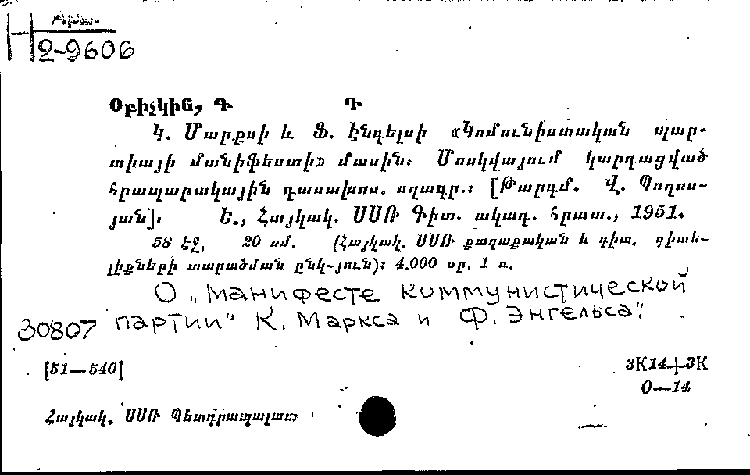 2-9606
Օբիչկին, Գ Դ
Կ. Մարքսի և Ֆ. Էնգելսի «Կոմունիստական պար-
տիայի մանիֆեստի» մասին: Մոսկվայում կարդացված
հրապարակային դասախոս. սղագր.: [Թարգմ. Վ. Պողոս-
յան]: Ե., Հայկակ. ՍՍՌ Գիտ. ակադ. հրատ., 1951.
58 էջ, 20 սմ. (Հայկակ. ՍՍՌ քաղաքական և գիտ. գիտե-
լիքների տարածման ընկ-յուն): 4.000 օր. 1 ռ.
О „Манифесте коммунистической
30807 партии" К. Маркса и Ф. Энгельса".
[51—540] 3К14+3К
О—14
Հայկակ. ՍՍՌ Պետգրապալատ